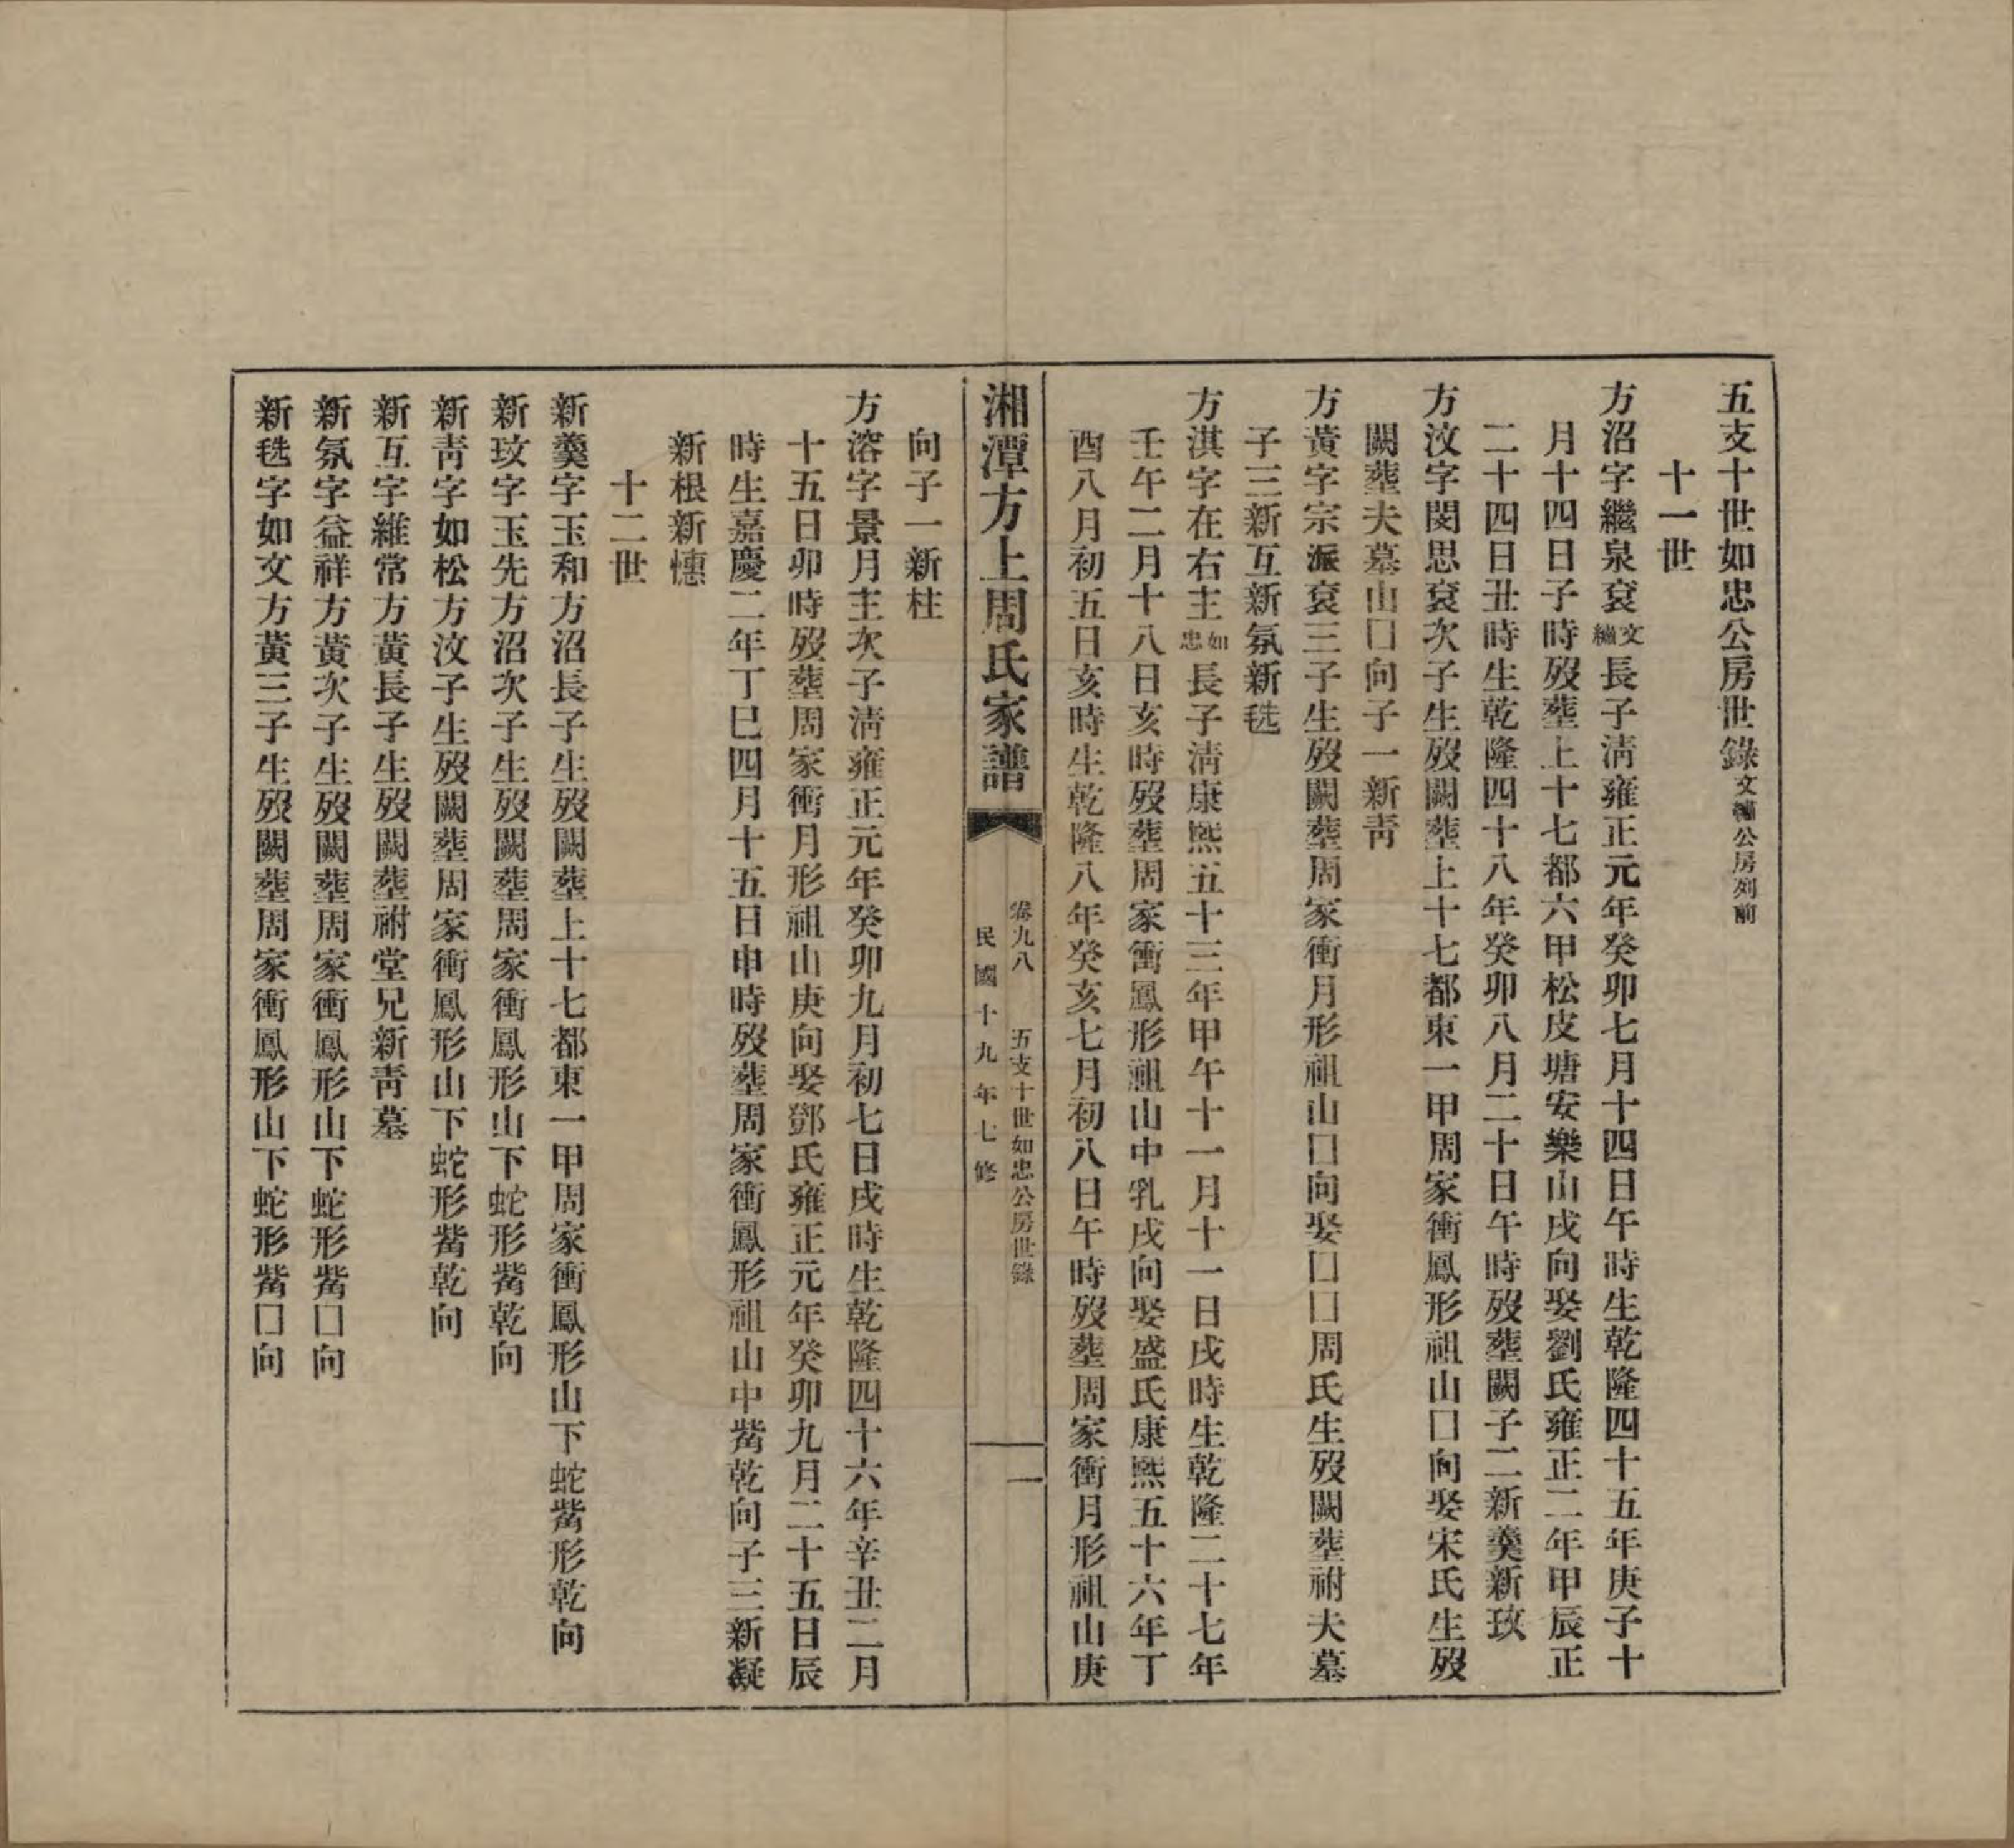 五支十世如忠公房世錄文繡公房列前
十一世
方沼字繼泉袞文繡長子淸雍正元年癸卯七月十四日午時生乾隆四十五年庚子十
月十四日子時歿葬上十七都六甲松皮塘安樂山戌向娶劉氏雍正二年甲辰正
二十四日丑時生乾隆四十八年癸卯八月二十日午時歿葬闕子二新羹新玫
方汶字閔思袞次子生歿闕葬上十七都東一甲周家衝鳳形祖山囗向娶宋氏生歿
闕葬夫墓山囗向子一新靑
方黃字宗派袞三子生歿闕葬周家衝月形祖山囗向娶囗囗周氏生歿闕葬祔夫墓
子三新互新氛新毨
方淇字在右主如忠長子淸康熙五十三年甲午十一月十一日戌時生乾隆二十七年
壬午二月十八日亥時歿葬周家衝鳳形祖山中乳戌向娶盛氏康熙五十六年丁
酉八月初五日亥時生乾隆八年癸亥七月初八日午時歿葬周家衝月形祖山庚
湘潭方上周氏家譜
卷九八 五支十世如忠公房世錄 一
民國十九年七修
向子一新柱
方溶字景月主次子淸雍正元年癸卯九月初七日戌時生乾隆四十六年辛丑二月
十五日卯時歿葬周家衝月形祖山庚向娶鄧氏雍正元年癸卯九月二十五日辰
時生嘉慶二年丁巳四月十五日申時歿葬周家衝鳳形祖山中觜乾向子三新凝
新根新憓
十二世
新羹字玉和方沼長子生歿闕葬上十七都東一甲周家衝鳳形山下蛇觜形乾向
新玫字玉先方沼次子生歿闕葬周家衝鳳形山下蛇形觜乾向
新靑字如松方汶子生歿闕葬周家衝鳳形山下蛇形觜乾向
新互字維常方黃長子生歿闕葬祔堂兄新靑墓
新氛字益祥方黃次子生歿闕葬周家衝鳳形山下蛇形觜囗向
新毨字如文方黃三子生歿闕葬周家衝鳳形山下蛇形觜囗向